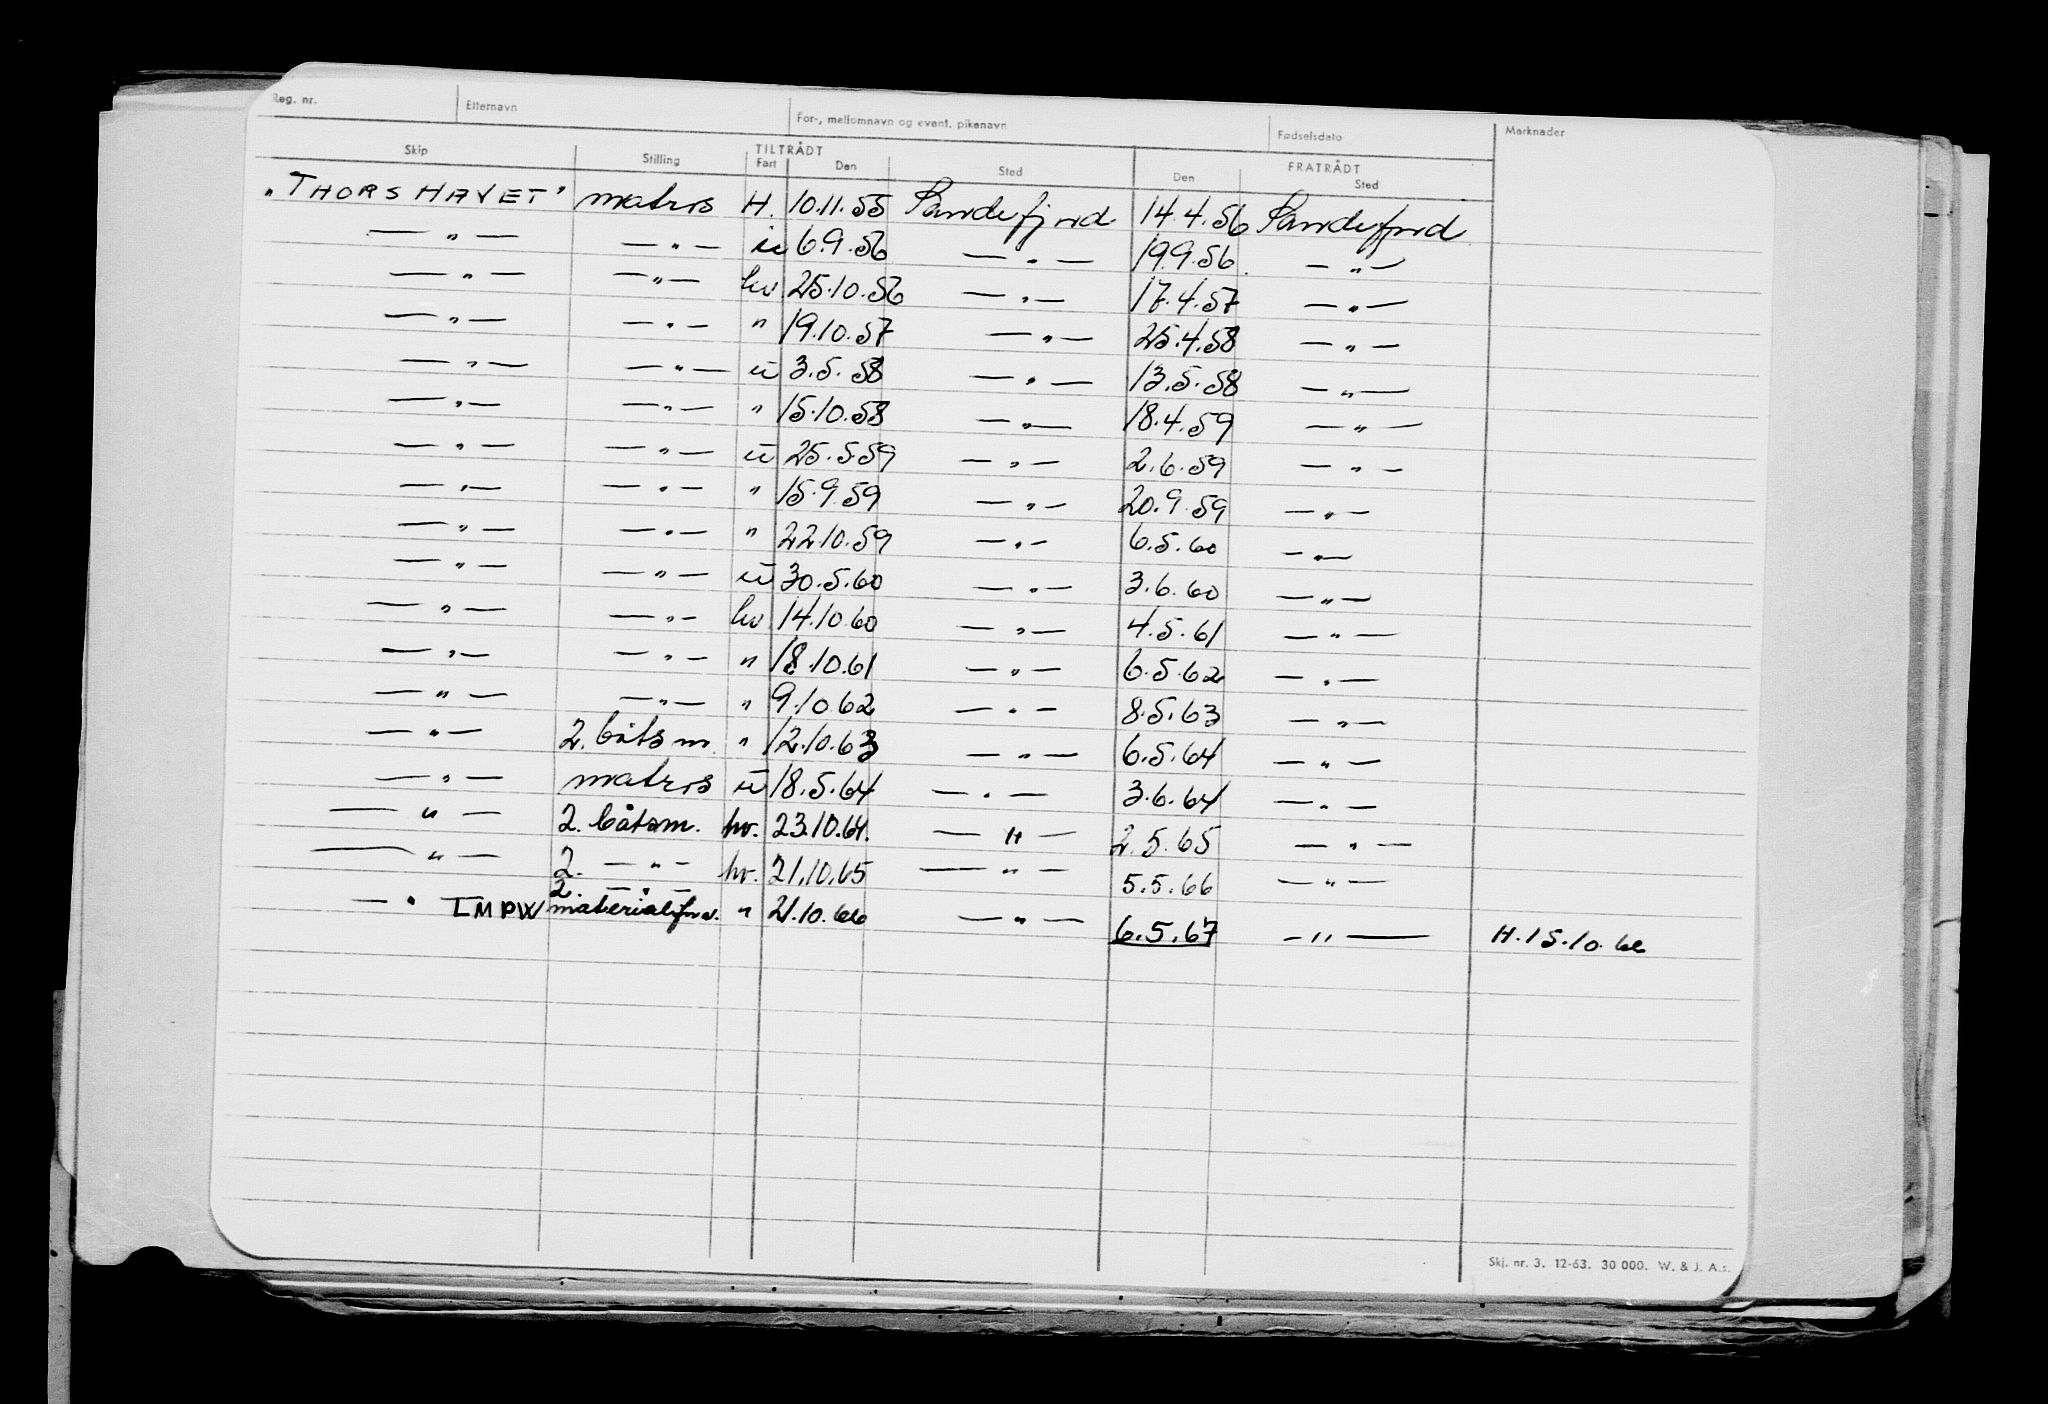 Reg. nr. Etternavn For-, mellomnavn og event. pikenavn Fødselsdato Merknader
TILTRÅDT FRATRÅDT
Skip Stilling Fart Den Sted Den Sted
"THORSHAVET" matros H. 10.11.55 Sandefjord 14.4.56 Sandefjord
— " — — " — u 6.9.56 — " — 19.9.56 — " —
— " — — " — hv 25.10.56 — " — 17.4.57 — " —
— " — — " — " 19.10.57 — " — 25.4.58 — " —
— " — — " — u 3.5.58 — " — 13.5.58 — " —
— " — — " — " 15.10.58 — " — 18.4.59 — " —
— " — — " — u 25.5.59 — " — 2.6.59 — " —
— " — — " — " 15.9.59 — " — 20.9.59 — " —
— " — — " — " 22.10.59 — " — 6.5.60 — " —
— " — — " — u 30.5.60 — " — 3.6.60 — " —
— " — — " — hv 14.10.60 — " — 4.5.61 — " —
— " — — " — " 18.10.61 — " — 6.5.62 — " —
— " — — " — " 9.10.62 — " — 8.5.63 — " —
— " — 2. båtsm. " 12.10.63 — " — 6.5.64 — " —
— " — matros u 18.5.64 — " — 3.6.64 — " —
— " — 2. båtsm. hv. 23.10.64. — " — 2.5.65 — " —
— " — 2. — " — hv. 21.10.65 — " — 5.5.66 — " —
— " — LMPW 2. materialforv. " 21.10.66 — " — 6.5.67 — " — H.15.10.66
Skj. nr. 3. 12-63. 30 000. W. & J. A.s.